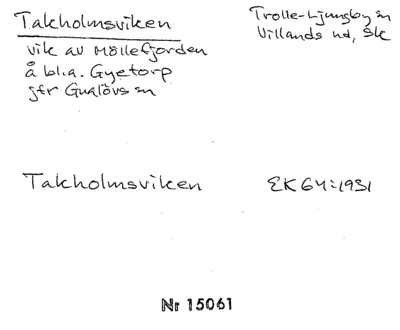 Takholmsviken
Trolle-Ljungby sn
Villands hd, Sk
vik av Möllefjorden
å bl.a. Gyetorp
jfr Gualövs sn
Takholmsviken
EK 64:1931
Nr 15061